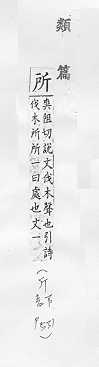 類篇
所
爽阻切說文伐木聲也引詩
伐木所所一曰處也文一
(斤